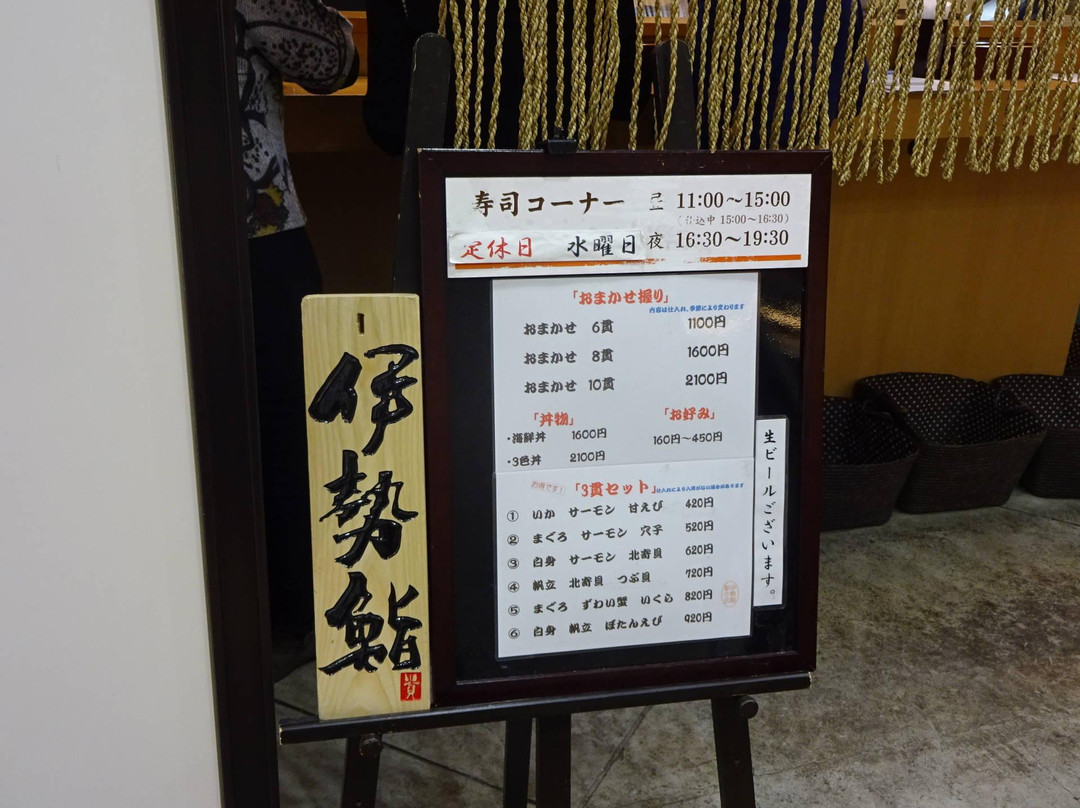 寿司コーナー 昼 11:00～15:00
(仕込中 15:00～16:30)
定休日 水曜日 夜 16:30～19:30
「おまかせ握り」
内容は仕入れ、季節により変わります
おまかせ 6貫 1100円
おまかせ 8貫 1600円
おまかせ 10貫 2100円
「丼物」 「お好み」
・海鮮丼 1600円 160円～450円
・3色丼 2100円
お得です! 「3貫セット」
① いか サーモン 甘えび 420円
② まぐろ サーモン 穴子 520円
③ 白身 サーモン 北寄貝 620円
④ 帆立 北寄貝 つぶ貝 720円
⑤ まぐろ ずわい蟹 いくら 820円
⑥ 白身 帆立 ぼたんえび 920円
生ビールございます。
伊勢鮨